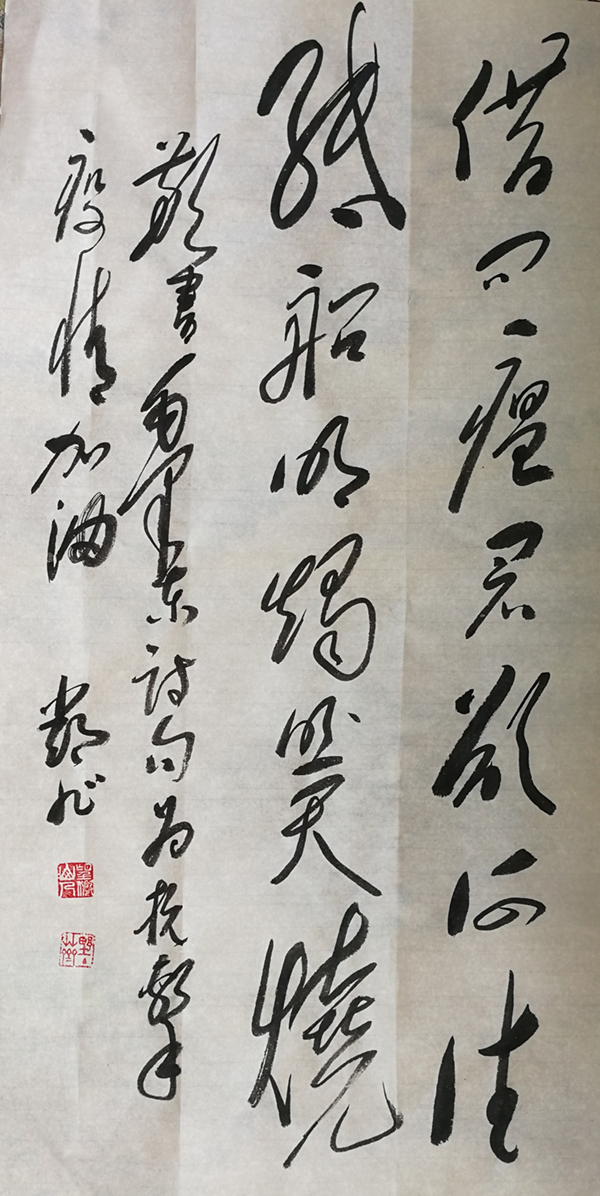 借问瘟君欲何往
纸船明燭照天燒
敬書毛澤东诗句为抗擊
疫情加油